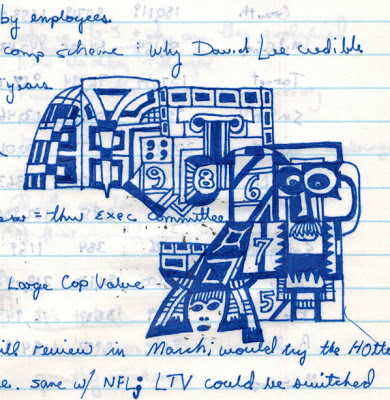 by employees.
comp scheme : why David Lee credible
years
;;
9 8 6
= thru Exec Committee
7
Large Cap Value
5
ill review in March; would try the Hotte
e. same w/ NFL; LTV could be switched